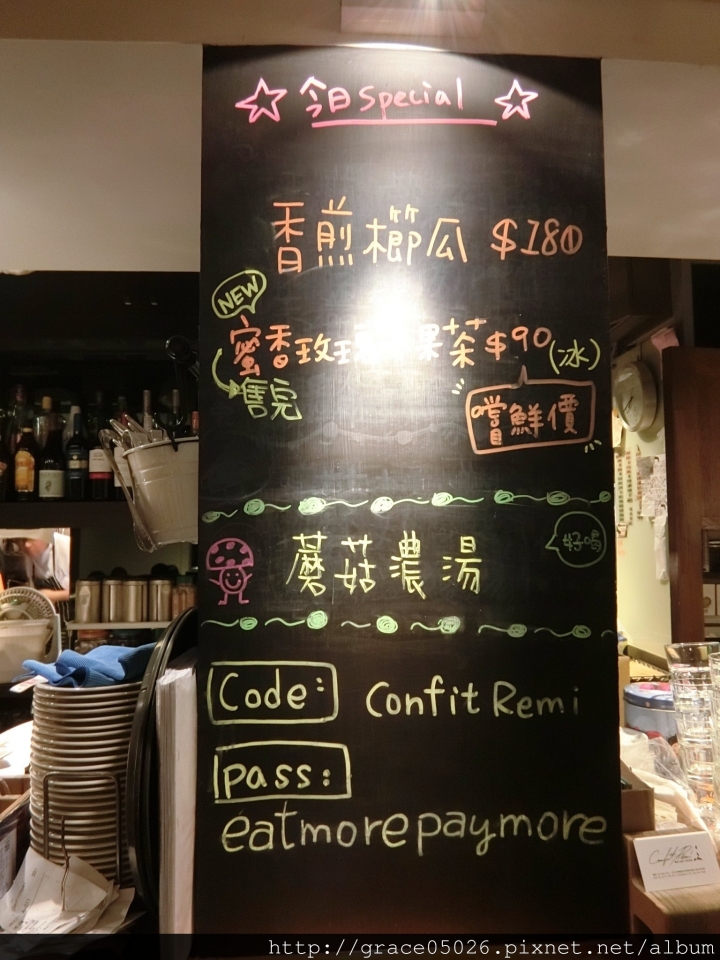 今日special
香煎櫛瓜 $180
NEW
蜜香玫瑰果茶 $90(冰)
售完
嚐鮮價
好喝
蘑菇濃湯
Code: Confit Remi
pass:
eatmorepaymore
Confit Remi
http://grace05026.pixnet.net/album